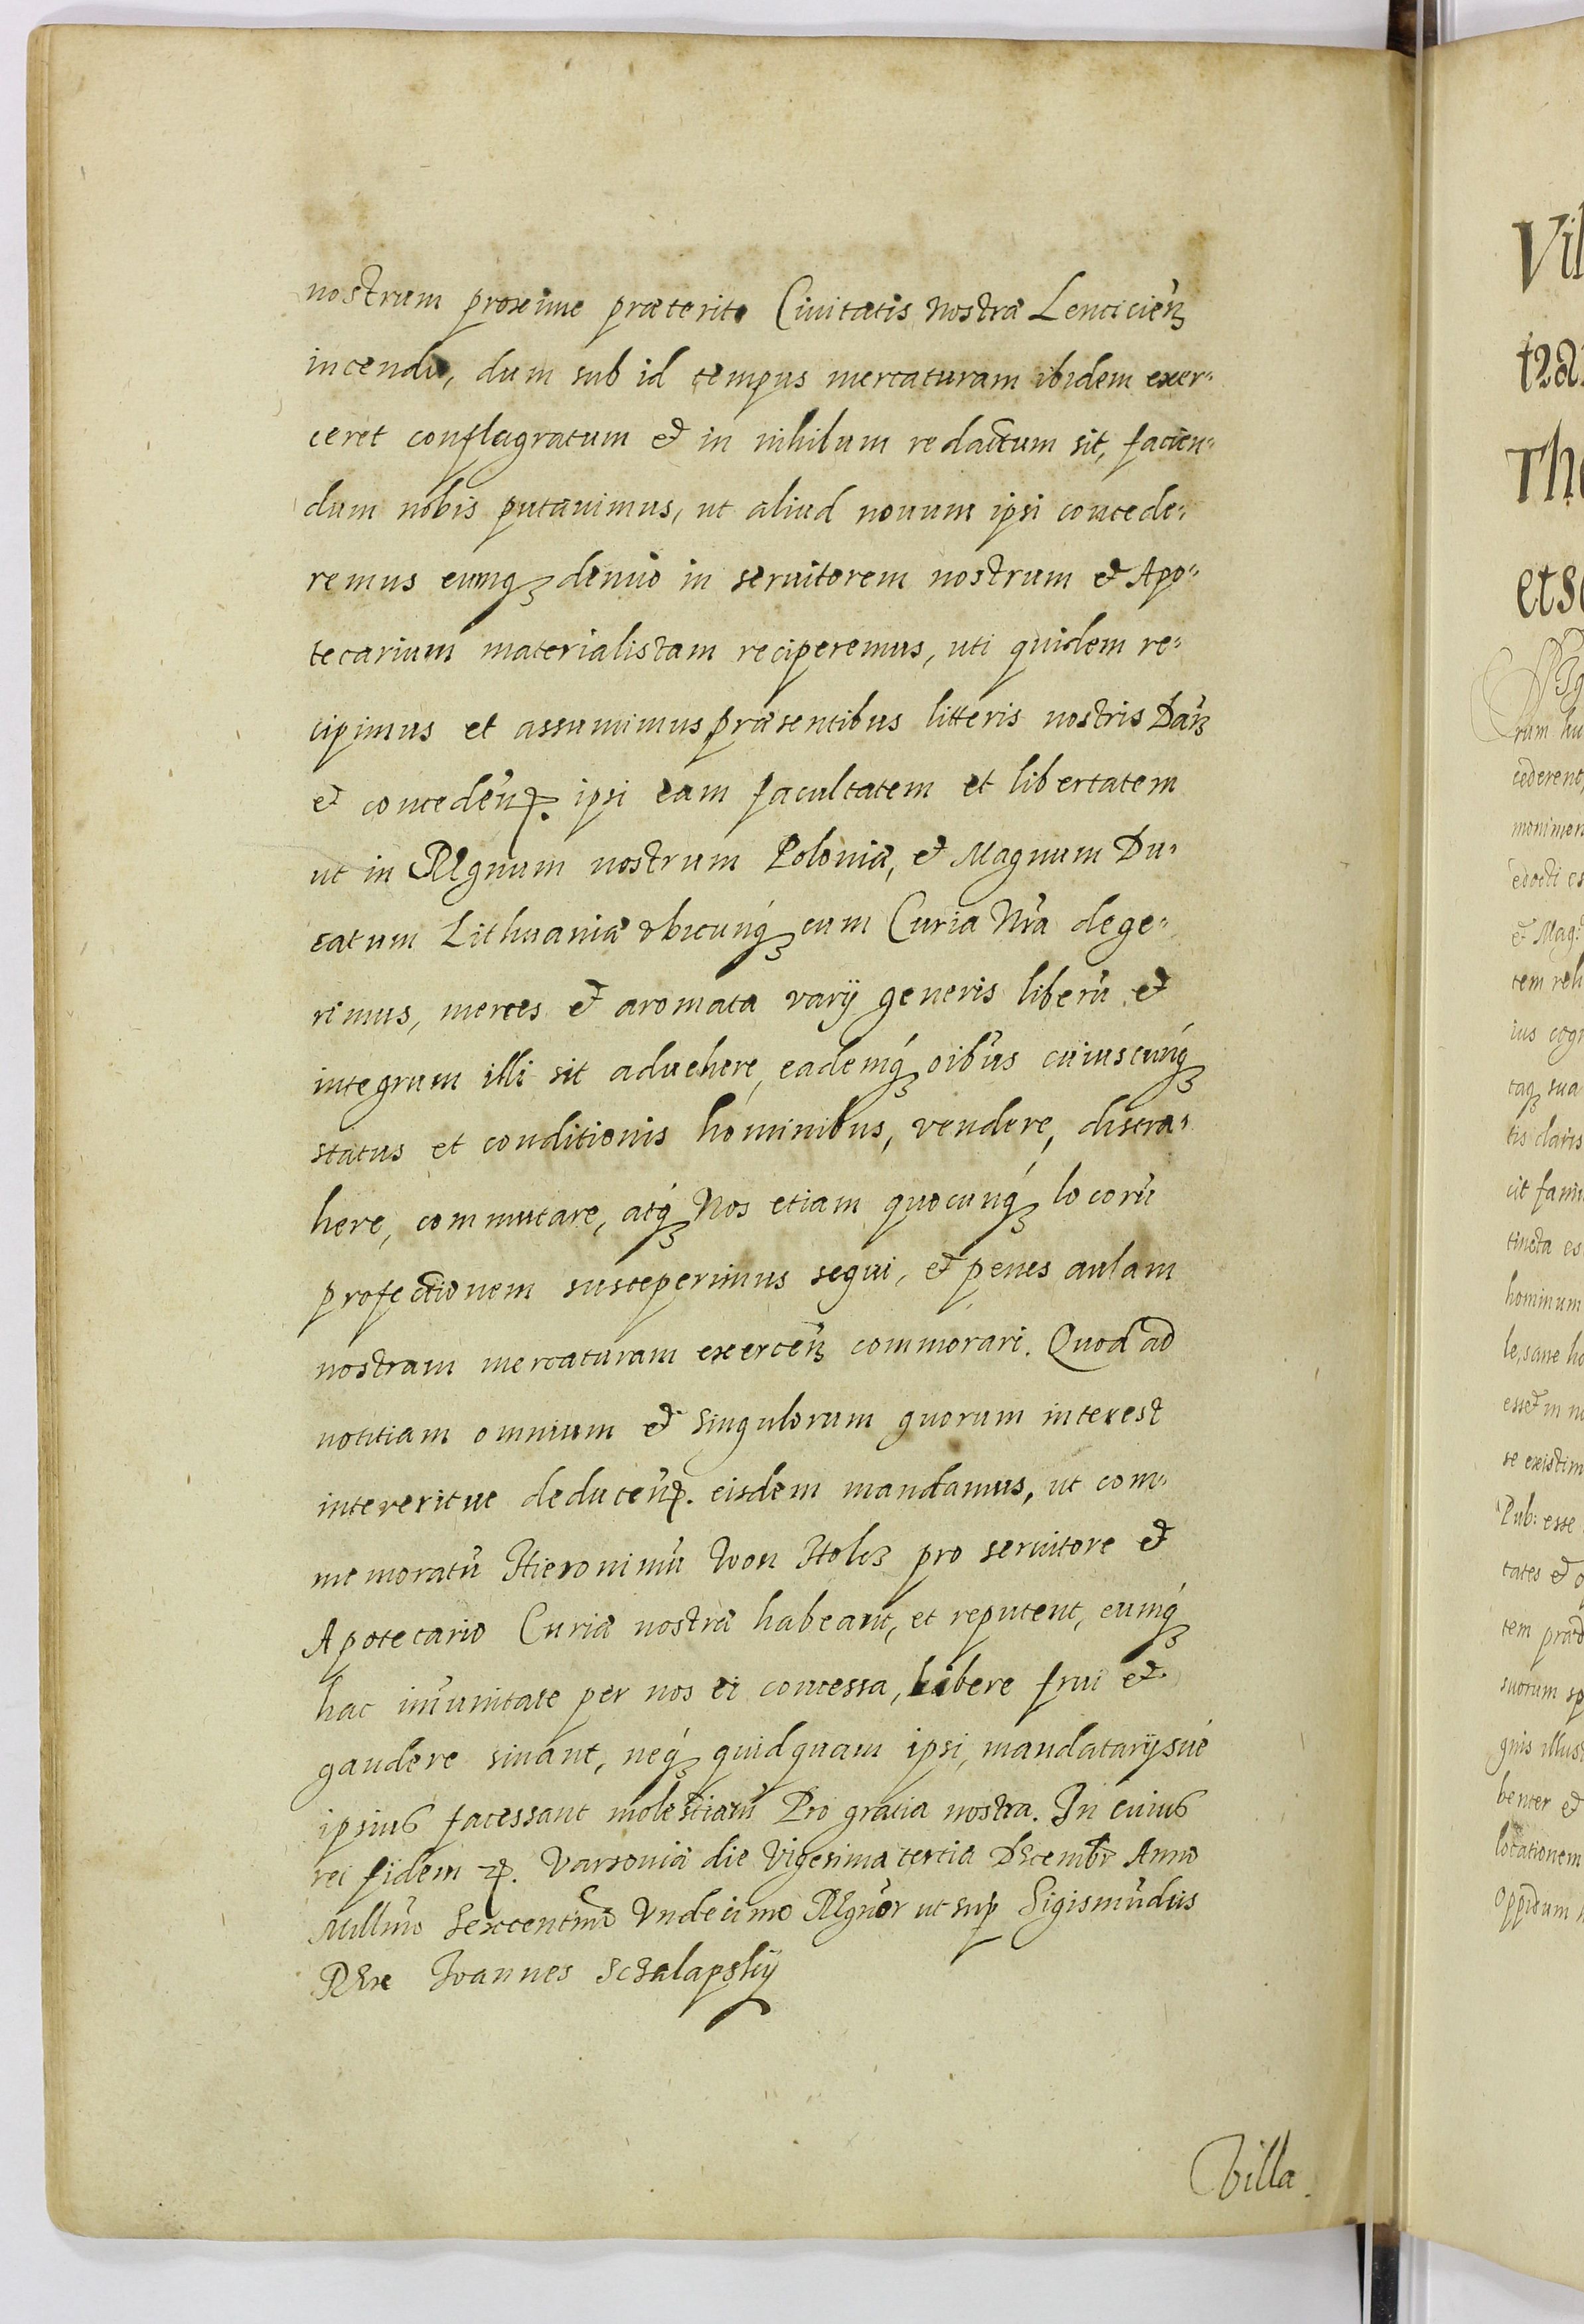 nostrum proxime præterito Ciuitatis Nostræ Lenciciеń
incendio, dum sub id tempus mercaturam ibidem exer-
ceret conflagratum et in nihilum redactum sit, facien-
dum nobis putauimus, ut aliud nouum ipsi concede-
remus eumq́ denuo in seruitorem nostrum et Apo-
tecarium materialistam reciperemus, uti quidem re-
cipimus et assumimus præsentibus litteris nostris Dań
et conceden̄. ipsi eam facultatem et libertatem
ut in Regnum nostrum Poloniæ, et Magnum Du-
catum Lithuaniæ vbicunq́ cum Curia Nr̃a dege-
rimus, merces et aromata varij generis liberũ et
integrum illi sit aduehere, eademq́ oĩbus cuiuscunq́
status et conditionis hominibus, vendere, distra-
here, commutare, atq́ Nos etiam quocunq́ locorũ
profectionem susceperimus sequi, et penes aulam
nostram mercaturam exerceń commorari. Quod ad
notitiam omnium et singulorum quorum interest
intereritue deduceń. eisdem mandamus, ut com-
memoratũ Hieronimũ Won Holcz pro seruitore et
Apotecario Curiæ nostræ habeant, et reputent, eumq́
hac im̃unitate per nos ei concessa, libere frui et
gaudere sinant, neq́ quidquam ipsi, mandatarijsué
ipsius facessant molestiarũ Pro gratia nostra. In cuius
rei fidem etc. Varsouiæ die Vigesima tertia Decembr Anno
Mill̃mo Sexcentmo Vndecimo Regnor ut sup Sigismũdus
Rex Joannes Schalapskij
Villa.
Vil
tza
The
etse
rum hu
cederent,
monimen
edocti es
et Mag:
tem reli
ius cogn
taq́ sua
tis claris
cit fami
tincta es
hominum
le, sane ho
esset in n
se existim
Pub: esse
tates et o
tem præd
suorum sp
gnis illust
benter et
locationem
oppidum